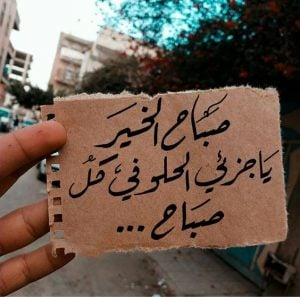 صَبَاح الخيرَ
يَا جزئي الحلو فيَ كلُ
صبَاح ...